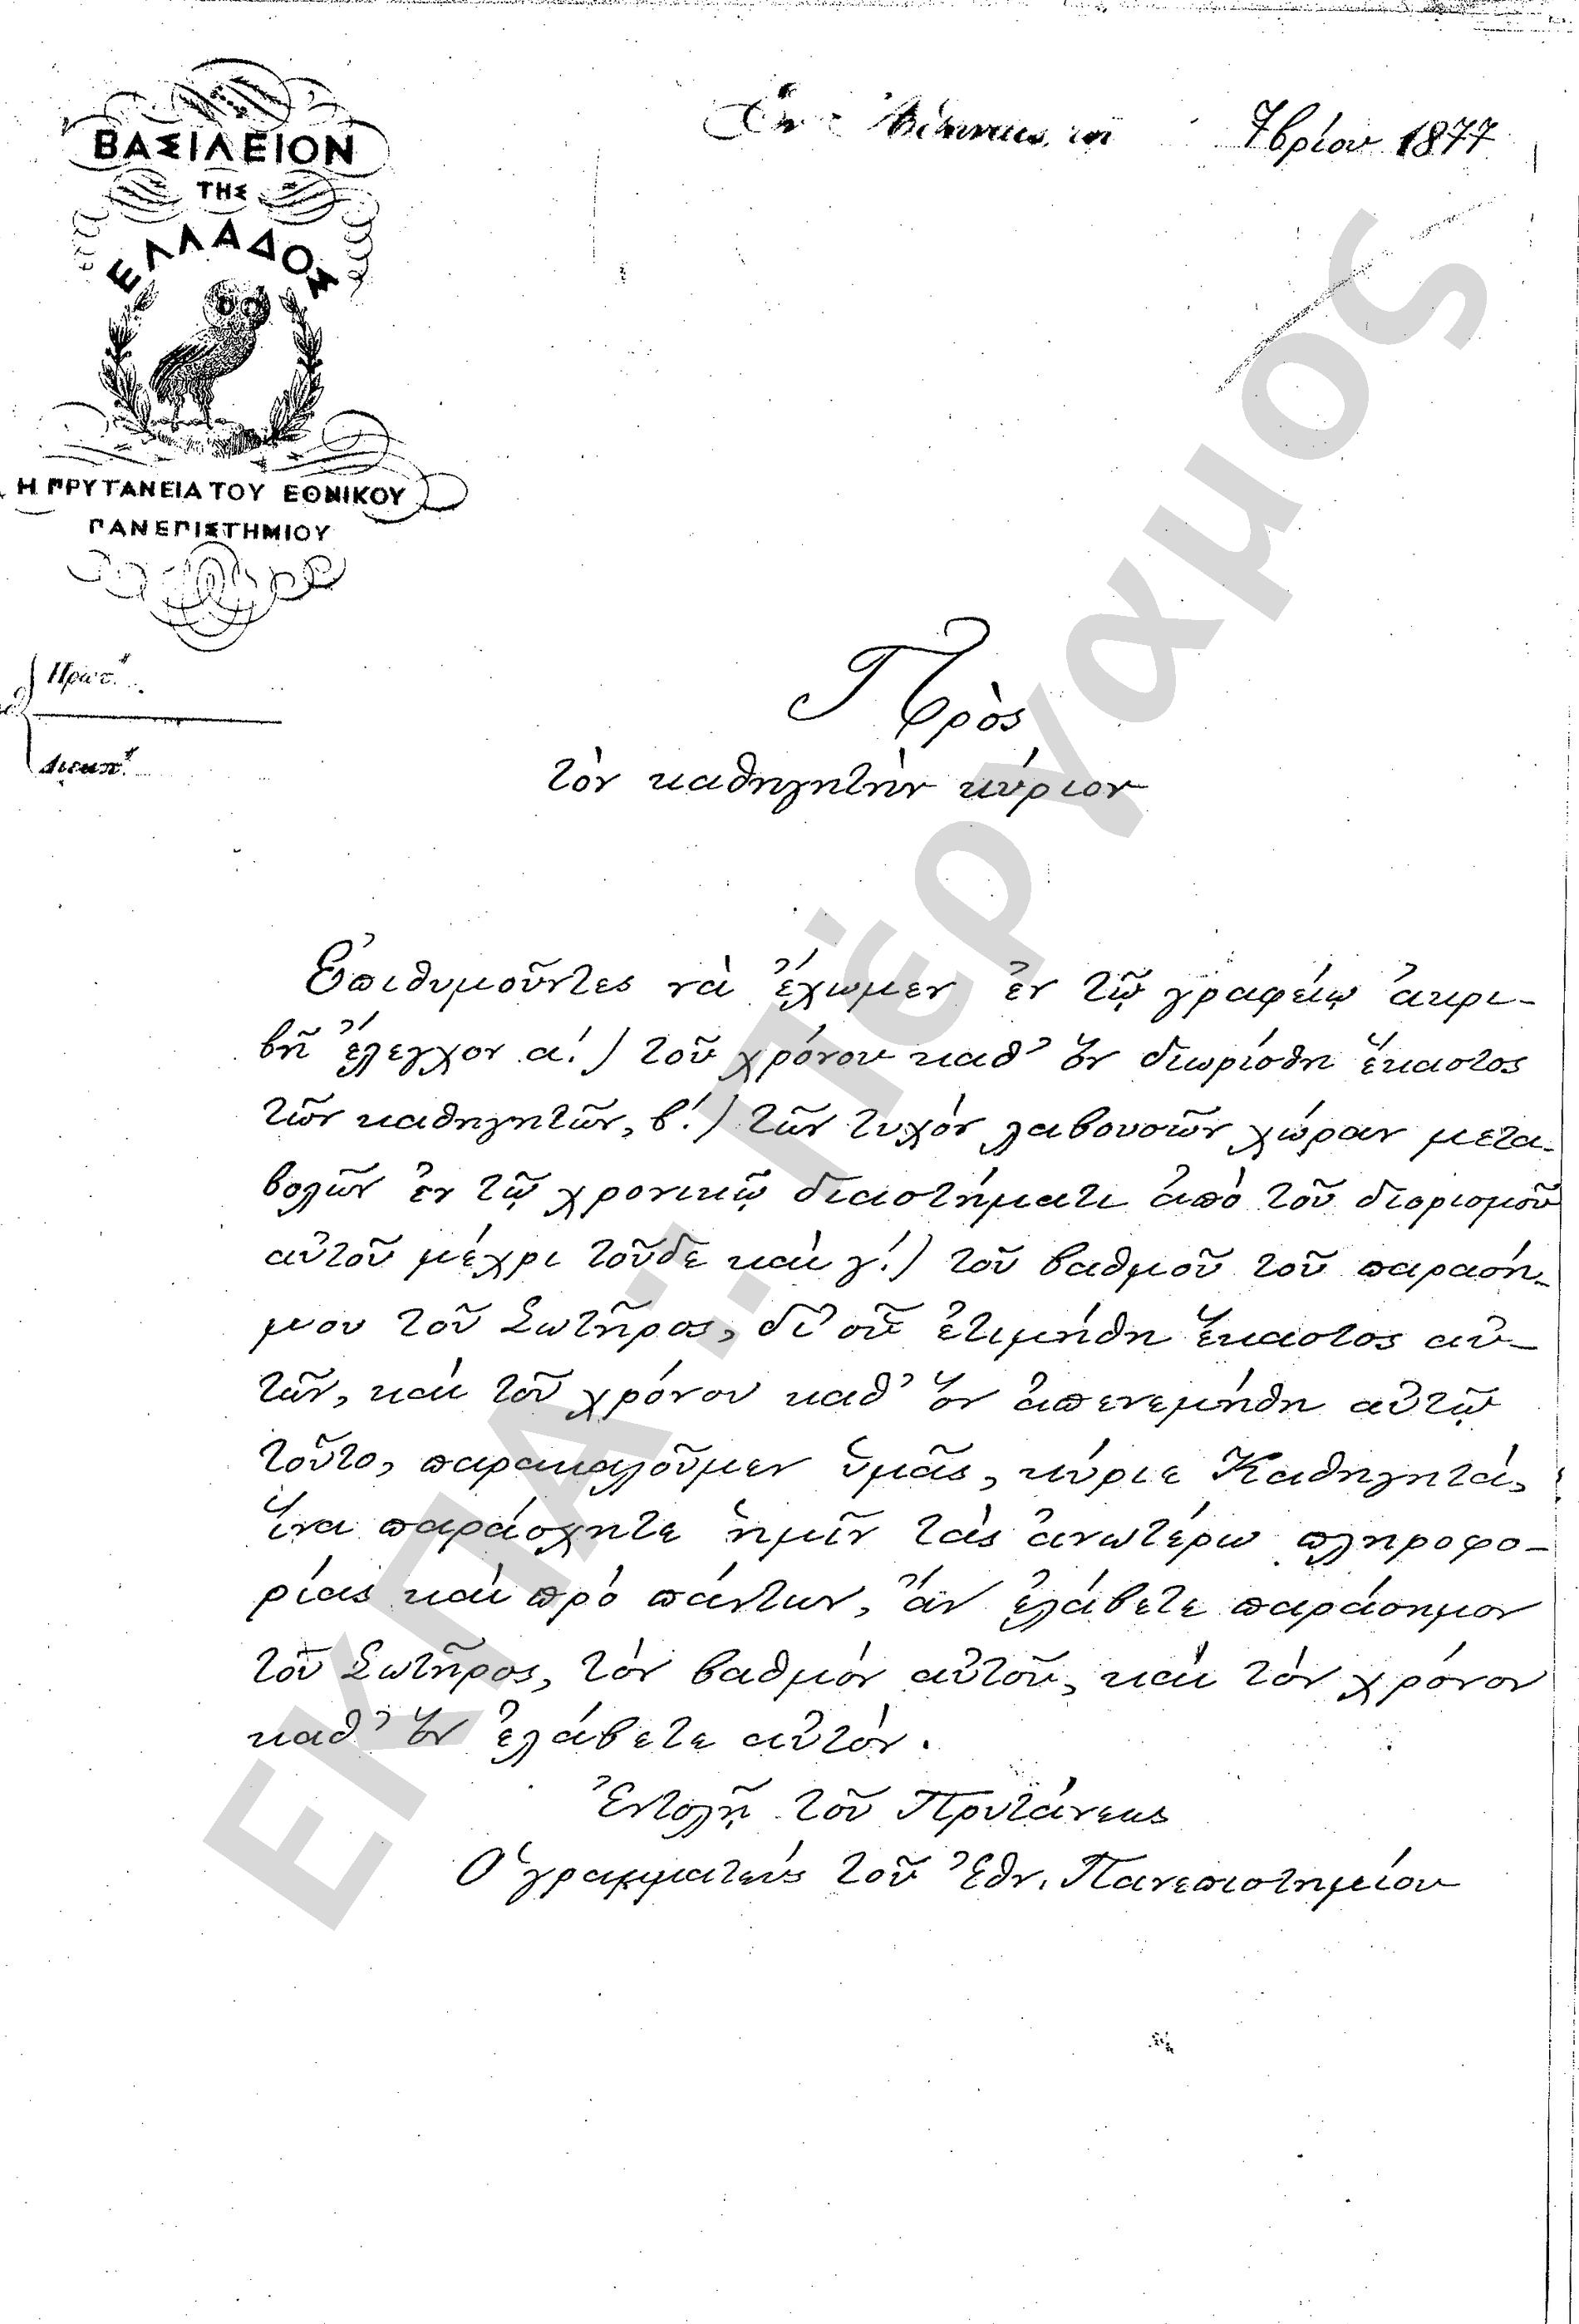 ΒΑΣΙΛΕΙΟΝ
ΤΗΣ
ΕΛΛΑΔΟΣ
Η ΠΡΥΤΑΝΕΙΑ ΤΟΥ ΕΘΝΙΚΟΥ
ΠΑΝΕΠΙΣΤΗΜΙΟΥ
Ἐν Ἀθήναις τῇ 7βρίου 1877
Πρωτ.
Διεκπ.
Πρὸς
τὸν καθηγητὴν κύριον
Ἐπιθυμοῦντες νὰ ἔχωμεν ἐν τῷ γραφείῳ ἀκρι-
βῆ ἔλεγχον α΄.) τοῦ χρόνου καθ' ὃν διωρίσθη ἕκαστος
τῶν καθηγητῶν, β΄.) τῶν τυχὸν λαβουσῶν χώραν μετα-
βολῶν ἐν τῷ χρονικῷ διαστήματι ἀπὸ τοῦ διορισμοῦ
αὐτοῦ μέχρι τοῦδε καὶ γ΄.) τοῦ βαθμοῦ τοῦ παρασή-
μου τοῦ Σωτῆρος, δι' οὗ ἐτιμήθη ἕκαστος αὐ-
τῶν, καὶ τοῦ χρόνου καθ' ὃν ἀπενεμήθη αὐτῷ
τοῦτο, παρακαλοῦμεν ὑμᾶς, κύριε Καθηγητά,
ἵνα παράσχητε ἡμῖν τὰς ἀνωτέρω πληροφο-
ρίας καὶ πρὸ πάντων, ἂν ἐλάβετε παράσημον
τοῦ Σωτῆρος, τὸν βαθμὸν αὐτοῦ, καὶ τὸν χρόνον
καθ' ὃν ἐλάβετε αὐτόν.
Ἐντολῇ τοῦ Πρυτάνεως
Ὁ γραμματεὺς τοῦ Ἐθν. Πανεπιστημίου
ΕΚΠΑ:.Πέργαμος